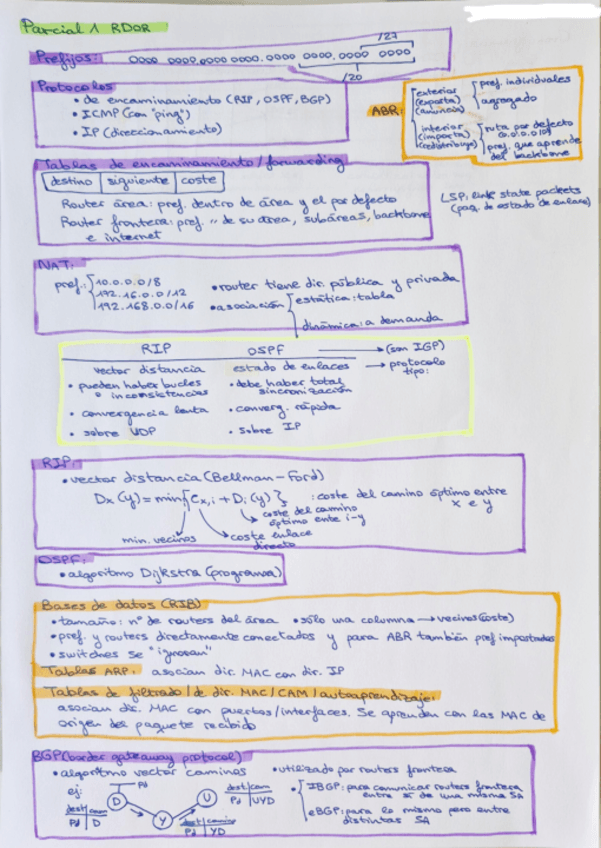 Parcial 1 RDOR
Prefijos: 0000 0000.0000 0000.0000 0000.0000 0000
/27
/20
Protocolos
• de encaminamiento (RIP, OSPF, BGP)
• ICMP (con "ping")
• IP (direccionamiento)
ABR:
exterior (exporta) (anuncia)
pref. individuales
agregado
interior (importa) (redistribuye)
ruta por defecto 0.0.0.0/0
pref. que aprende del backbone
Tablas de encaminamiento/forwarding
destino siguiente coste
Router área: pref. dentro de área y el por defecto
Router frontera: pref. " de su área, subáreas, backbone
e internet
LSP: link state packets
(paq. de estado de enlace)
NAT:
pref.: 10.0.0.0/8
172.16.0.0/12
192.168.0.0/16
• router tiene dir. pública y privada
• asociación estática: tabla
dinámica: a demanda
RIP OSPF → (son IGP)
vector distancia estado de enlaces → protocolo tipo:
• pueden haber bucles e inconsistencias
• debe haber total sincronización
• convergencia lenta • converg. rápida
• sobre UDP • sobre IP
RIP:
• vector distancia (Bellman-Ford)
Dx (y) = min { Cx,i + Di (y) } : coste del camino óptimo entre x e y
coste del camino óptimo ente i-y
min. vecinos coste enlace directo
OSPF:
• algoritmo Dijkstra (programa)
Bases de datos (RIB)
• tamaño: nº de routers del área • sólo una columna → vecinos (coste)
• pref. y routers directamente conectados y para ABR también pref importados
• switches se "ignoran"
Tablas ARP: asocian dir. MAC con dir. IP
Tablas de filtrado / de dir. MAC / CAM / autoaprendizaje:
asocian dir. MAC con puertos/interfaces. Se aprenden con las MAC de
origen del paquete recibido
BGP (border gateaway protocol)
• algoritmo vector caminos • utilizado por routers frontera
ej:
Pd
D
U
Y
dest cam
Pd D
dest camino
Pd YD
dest cam
Pd UYD
• IBGP: para comunicar routers frontera
entre sí de una misma SA
eBGP: para lo mismo pero entre
distintas SA